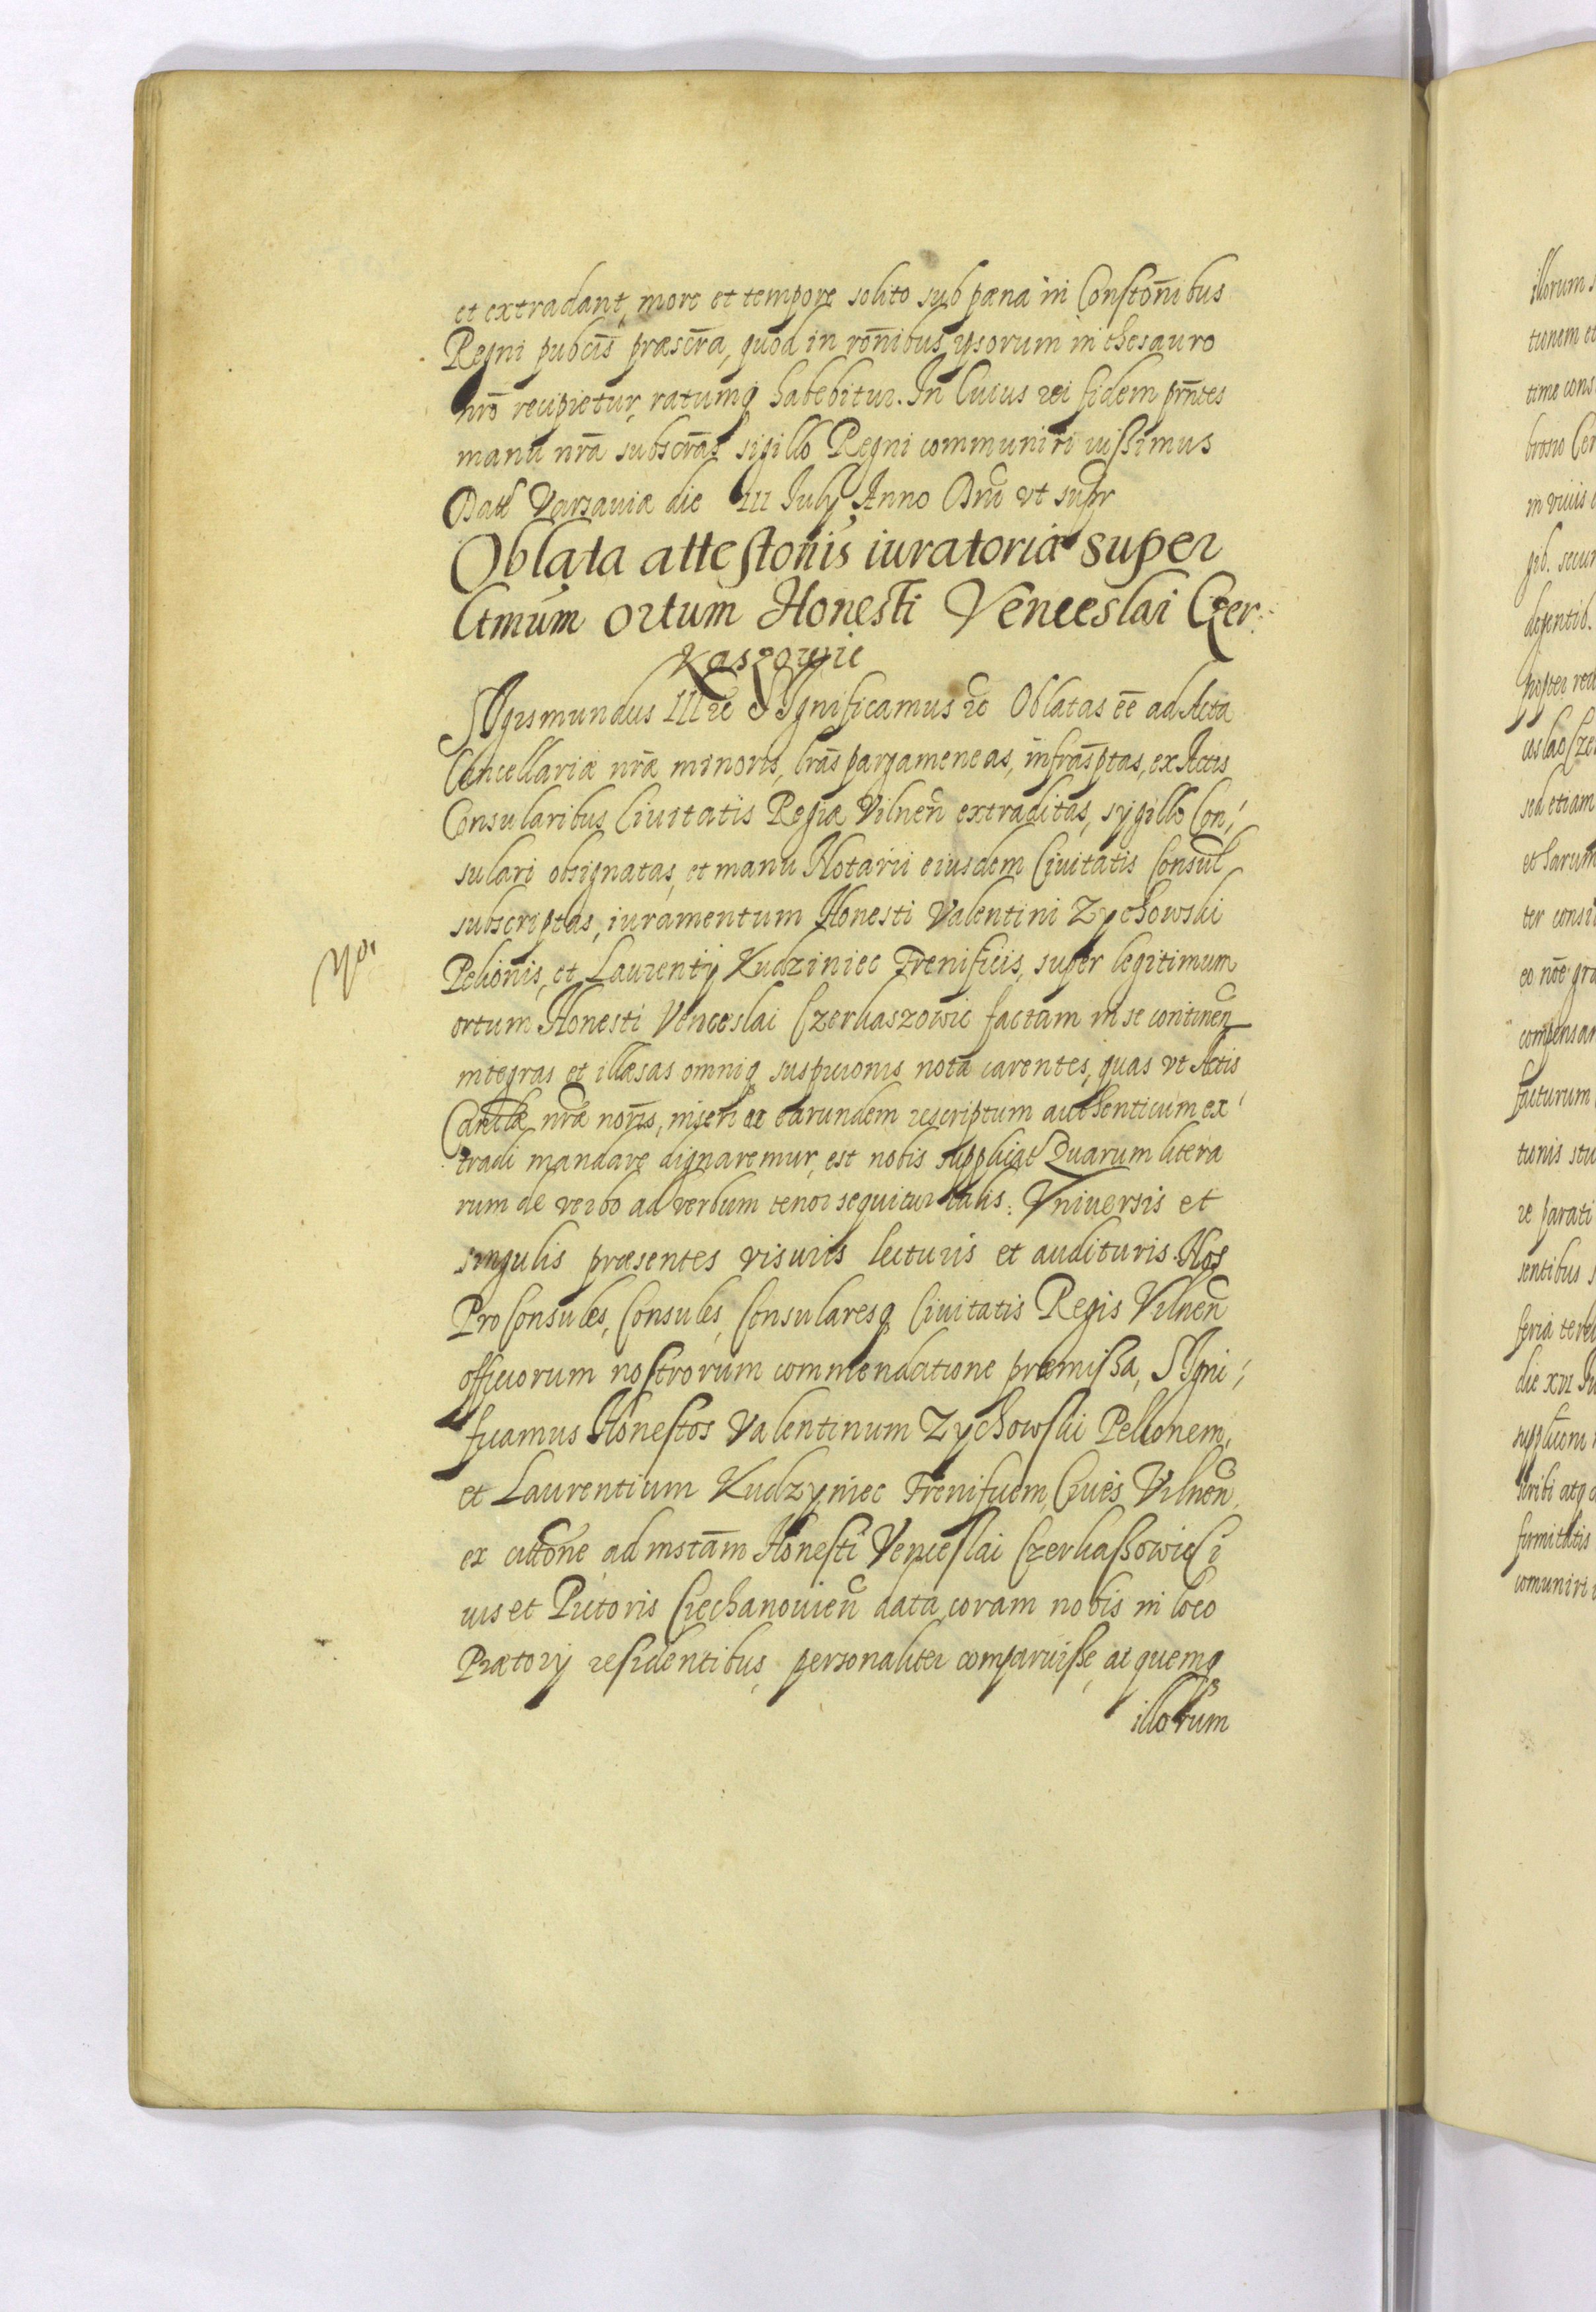 et extradant, more et tempore solito sub pæna in Constõnibus
Regni pubcis præscr̃a, quod in rõnibus ipsorum in thesauro
nrõ recipietur, ratumq habebitur. In Cuius rei fidem prñtes
manu nrã subscrãs sigillo Regni communiri iussimus
Datt Varsaviæ die III July Anno Dñi vt supr
Oblata attestoñis iuratoriæ super
ltmũm ortum Honesti Venceslai Czer:
kaszowic
SIgismundus III rc SIgnificamus rc Oblatas eẽ ad Acta
Cancellariæ nrã minoris, lrãs pargameneas, infrãsptas, ex Actis
Consularibus Ciuitatis Regiæ Vilneñ extraditas, sygillo Con,
sulari obsignatas, et manu Notarii eiusdem Ciuitatis Consul
subscriptas, iuramentum Honesti Valentini Zychowski
Pelionis, et Laurentij Kudziniec Frenificis, super legitimum
ortum Honesti Venceslai Czerkaszowic factam in se contineñ
integras et illæsas omniq suspicionis nota carentes, quas vt Actis
Canclæ nræ noris, inseri ac earundem rescriptum authenticum ex
tradi mandare dignaremur, est nobis supplicat Quarum litera
rum de verbo ad verbum tenor sequitur talis: Vniversis et
singulis præsentes visuris lecturis et audituris. Nos
Pro Consules, Consules, Consularesq Ciuitatis Regis Vilneñ
officiorum nostrorum commendatione præmissa, SIgni,
ficamus Honestos Valentinum Zychowski Pellionem,
et Laurentium Kudzyniec Frenificem, Ciues Vilneñ,
ex cittõne ad instãm Honesti Venceslai Czerkaszowic Ci
uis et Pictoris Ciechanovieñ data, coram nobis in loco
Prætory residentibus, personaliter comparuisse, ac quemq
illorum